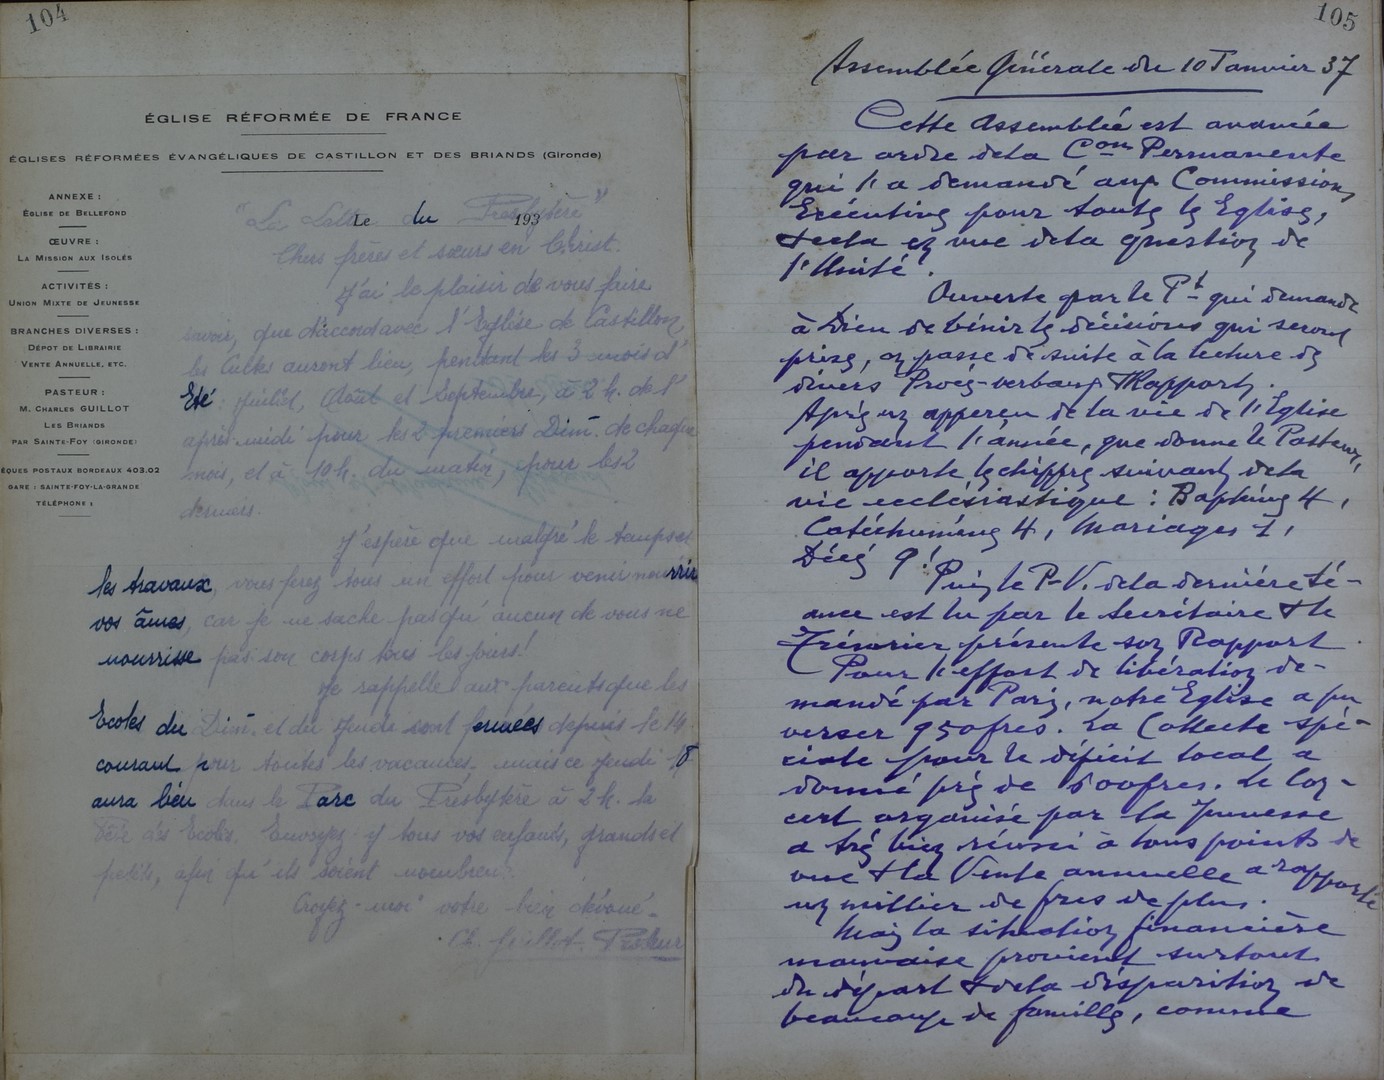 104
ÉGLISE RÉFORMÉE DE FRANCE
ÉGLISES RÉFORMÉES ÉVANGÉLIQUES DE CASTILLON ET DES BRIANDS (Gironde)
ANNEXE :
ÉGLISE DE BELLEFOND
ŒUVRE :
LA MISSION AUX ISOLÉS
ACTIVITÉS :
UNION MIXTE DE JEUNESSE
BRANCHES DIVERSES :
DÉPOT DE LIBRAIRIE
VENTE ANNUELLE, ETC.
PASTEUR :
M. CHARLES GUILLOT
LES BRIANDS
PAR SAINTE-FOY (GIRONDE)
ÈQUES POSTAUX BORDEAUX 403.02
GARE : SAINTE-FOY-LA-GRANDE
TÉLÉPHONE :
Le 193
"La du Presbytère"
Chers frères et sœurs en Christ.
J'ai le plaisir de vous faire
savoir, que d'accord avec l'Eglise de Castillon,
les Cultes auront lieu, pendant les 3 mois d'
Eté : Juillet, Août et Septembre, à 2 h. de l'
après-midi pour les 2 premiers Dim. de chaque
mois, et à 10 h. du matin, pour les 2
derniers.
J'espère que malgré le temps et
les travaux, vous ferez tous un effort pour venir nourrir
vos âmes, car je ne sache pas qu'aucun de vous ne
nourrisse pas son corps tous les jours!
Je rappelle aux parents que les
Ecoles du Dim. et du Jeudi sont fermées depuis le 14
courant pour toutes les vacances, mais ce Jeudi 18
aura lieu dans le Parc du Presbytère à 2 h. la
Fête des Ecoles. Envoyez-y tous vos enfants, grands et
petits, afin qu'ils soient nombreux.
Croyez-moi votre bien dévoué.
Ch. Guillot, Pasteur
105
Assemblée Générale du 10 Janvier 37
Cette Assemblée est avancée
par ordre de la Com Permanente
qui l'a demandé aux Commissions
Exécutives pour toutes les Eglises,
& cela en vue de la question de
l'Unité.
Ouverte par le Pt qui demande
à Dieu de bénir les décisions qui seront
prises, on passe de suite à la lecture des
divers Procès-verbaux & Rapports.
Après un apperçu de la vie de l'Eglise
pendant l'année, que donne le Pasteur,
il apporte les chiffres suivants de la
vie ecclésiastique : Baptêmes 4,
Catéchumènes 4, Mariages 1,
Décès 9!
Puis le P-V. de la dernière Sé-
ance est lu par le Secrétaire & le
Trésorier présente son Rapport.
Pour l'effort de libération de-
mandé par Paris, notre Eglise a pu
verser 950 frcs. La Collecte spé-
ciale pour le déficit local a
donné près de 500 frcs. Le Con-
cert organisé par la Jeunesse
a très bien réussi à tous points de
vue & la Vente annuelle a rapporté
un millier de frcs de plus.
Mais la situation financière
mauvaise provient surtout
du départ & de la disparition de
beaucoup de familles, comme